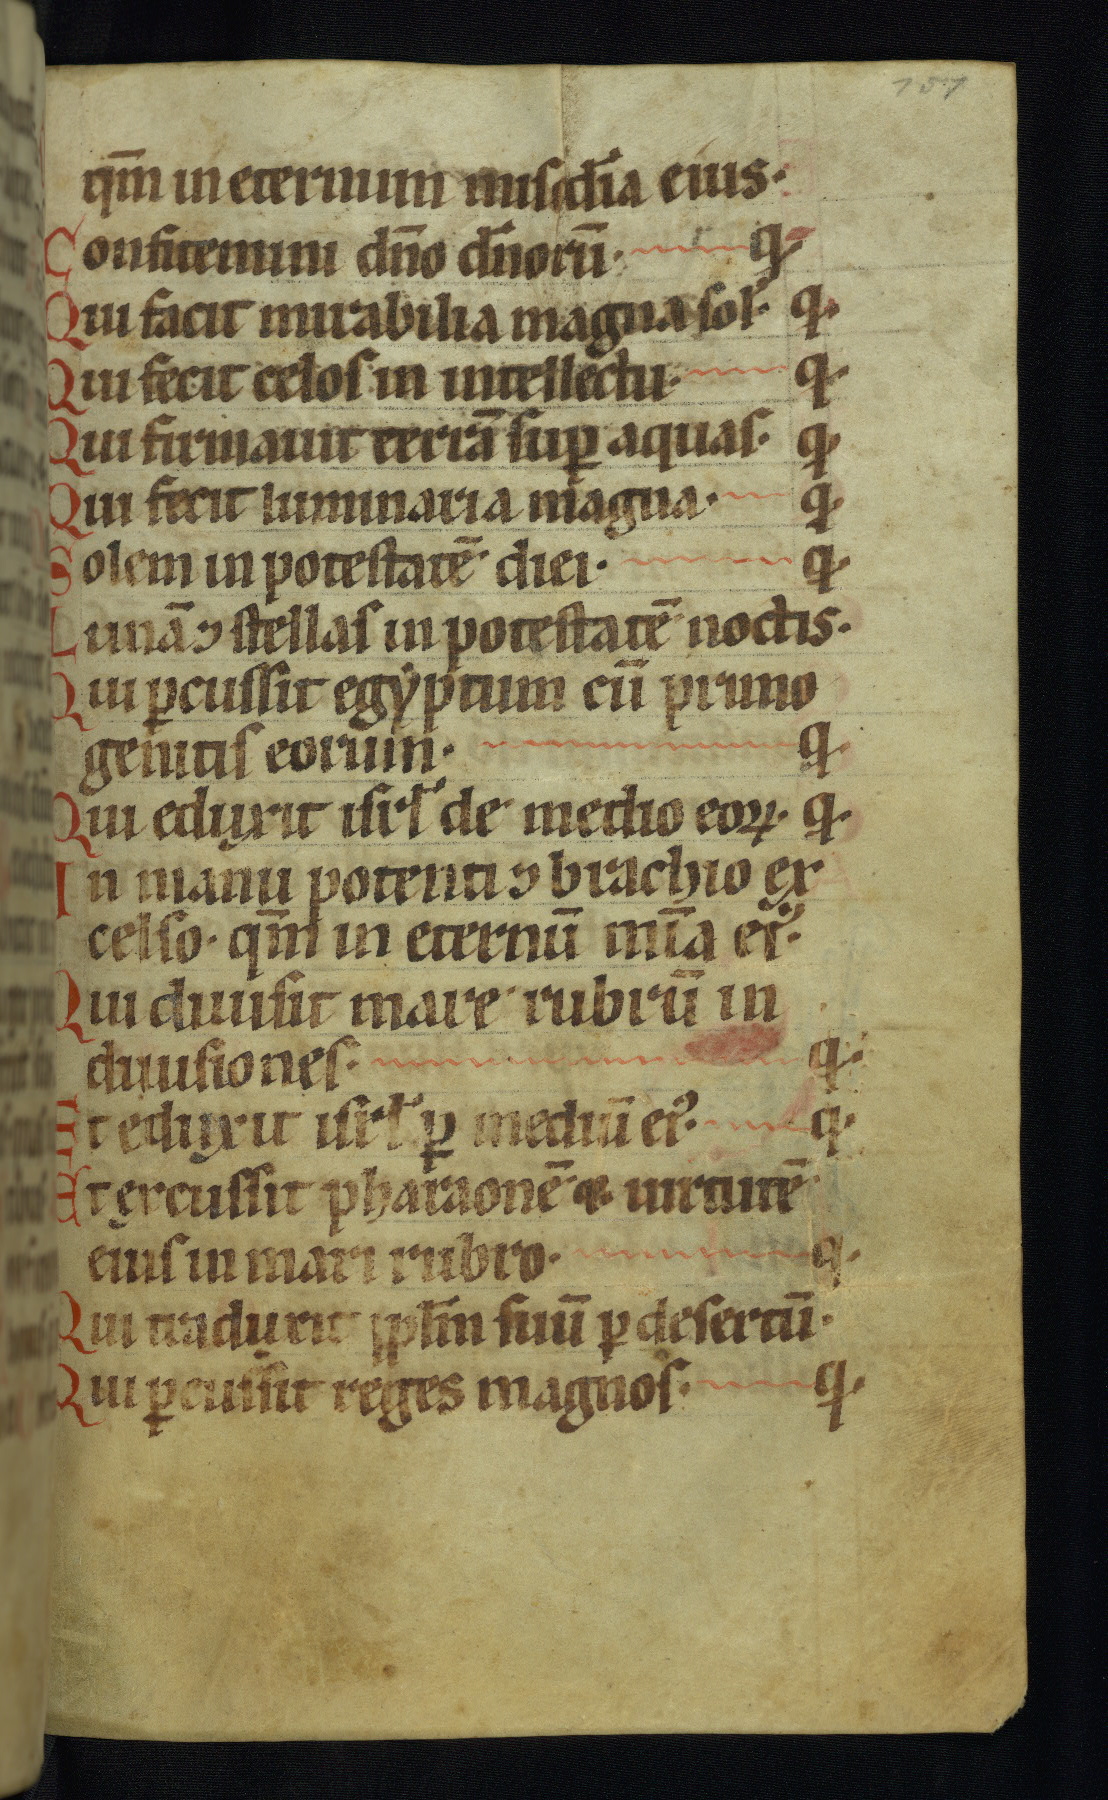 157
qm̄ in eternum miscd̄ia eius·
Confitemini dn̄o dn̄orū· q·
Qui facit mirabilia magna sol'· q·
Qui fecit celos in intellectu· q·
Qui firmauit terrā sup aquas· q·
Qui fecit luminaria magna· q·
Solem in potestatē diei· q·
Lunā ⁊ stellas in potestatē noctis·
Qui ꝑcussit egyptum cū primo
genitis eorum· q·
Qui eduxit isrl̄ de medio eoꝝ· q·
In manu potenti ⁊ brachio ex
celso· qm̄ in eternū mīa ei'·
Qui diuisit mare rubrū in
diuisiones· q·
Et eduxit isrl̄ ꝑ mediū ei'· q·
Et excussit pharaonē ⁊ uirtutē
eius in mari rubro· q·
Qui traduxit pplm̄ suū ꝑ desertū·
Qui ꝑcussit reges magnos· q·